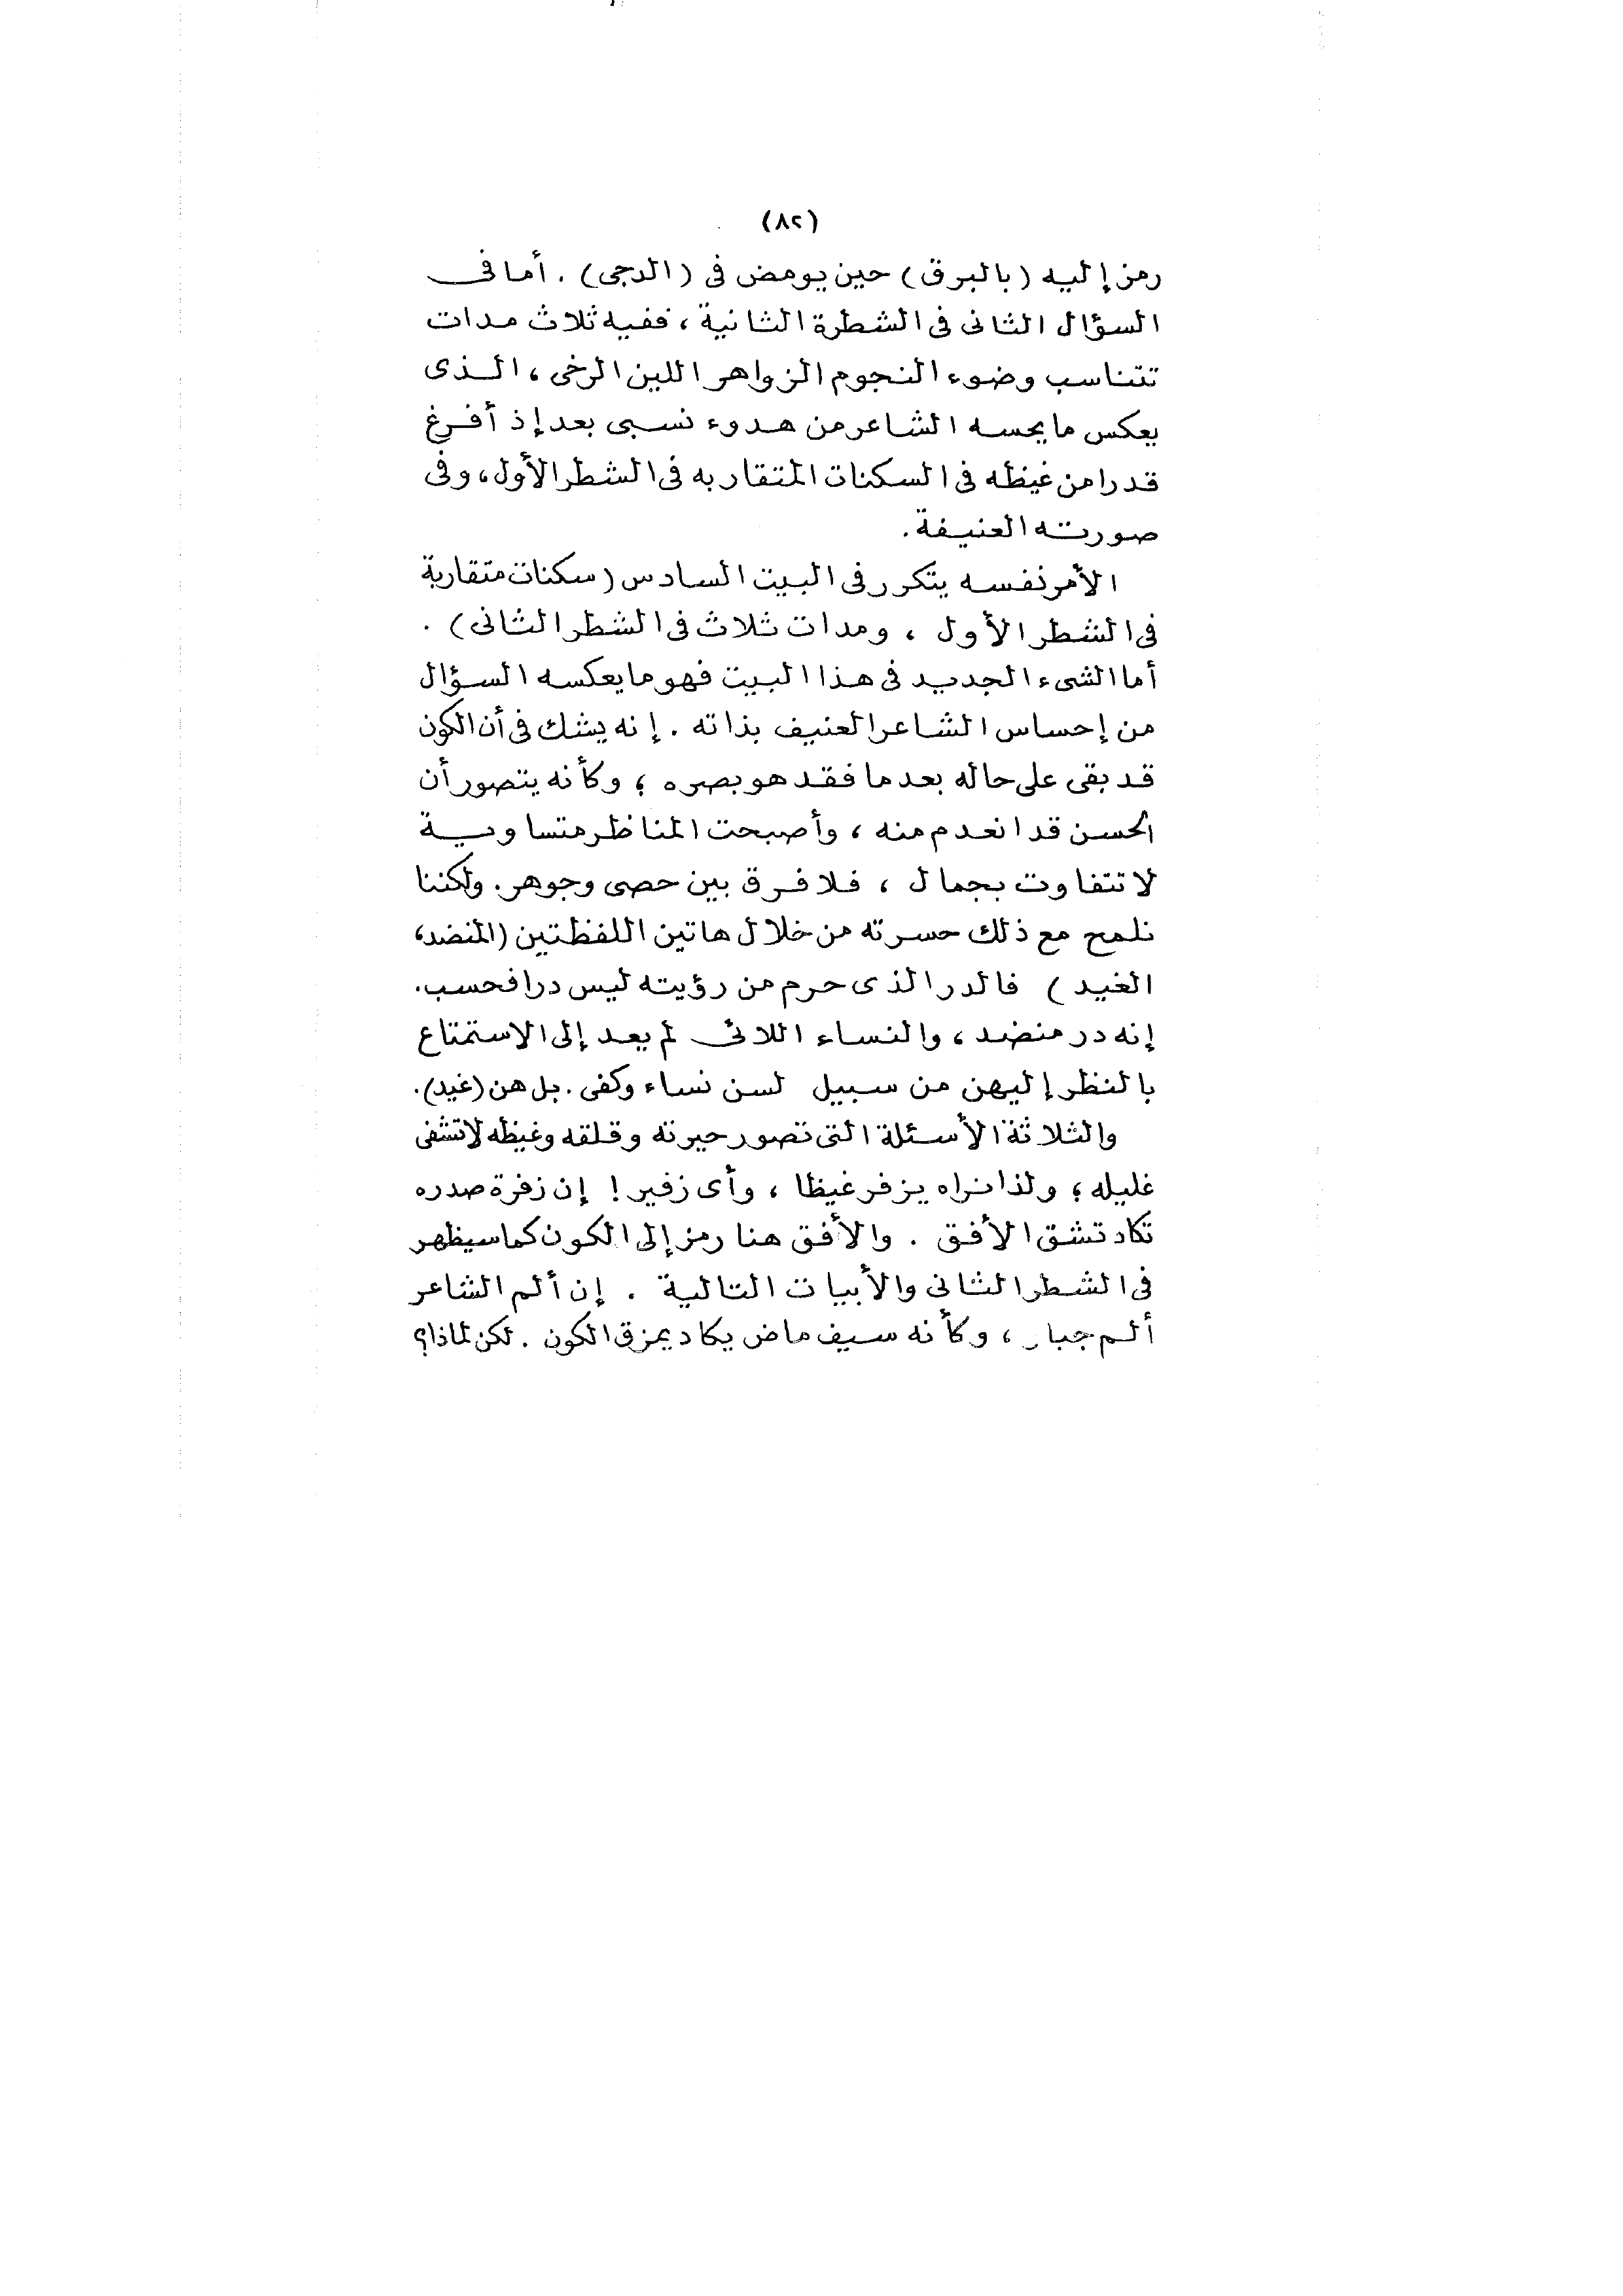 (٨٢)
رمز إليه (بالبرق) حين يومض فى (الدجى) . أما فى
السؤال الثانى فى الشطرة الثانية ، ففيه ثلاث مدات
تتناسب وضوء النجوم الزواهر اللين الرخى ، الذى
يعكس ما يحسه الشاعر من هدوء نسبى بعد إذ أفرغ
قدرا من غيظه فى السكنات المتقاربه فى الشطر الأول، وفى
صورته العنيفة .
الأمر نفسه يتكرر فى البيت السادس (سكنات متقاربة
فى الشطر الأول ، ومدات ثلاث فى الشطر الثانى) .
أما الشىء الجديد فى هذا البيت فهو ما يعكسه السؤال
من إحساس الشاعر العنيف بذاته . إنه يشك فى أن الكون
قد بقى على حاله بعد ما فقد هو بصره ؛ وكأنه يتصور أن
الحسن قد انعدم منه ، وأصبحت المناظر متساوية
لا تتفاوت بجمال ، فلا فرق بين حصى وجوهر. ولكننا
نلمح مع ذلك حسرته من خلال هاتين اللفظتين (المنضد،
الغيد) فالدر الذى حرم من رؤيته ليس درا فحسب.
إنه در منضد ، والنساء اللائى لم يعد إلى الاستمتاع
بالنظر إليهن من سبيل لسن نساء وكفى . بل هن (غيد).
والثلاثة الأسئلة التى تصور حيرته وقلقه وغيظه لا تشفى
غليله ؛ ولذا نراه يزفر غيظا ، وأى زفير ! إن زفرة صدره
تكاد تشق الأفق . والأفق هنا رمز إلى الكون كما سيظهر
فى الشطر الثانى والأبيات التالية . إن ألم الشاعر
ألم جبار ، وكأنه سيف ماض يكاد يمزق الكون . لكن لماذا؟